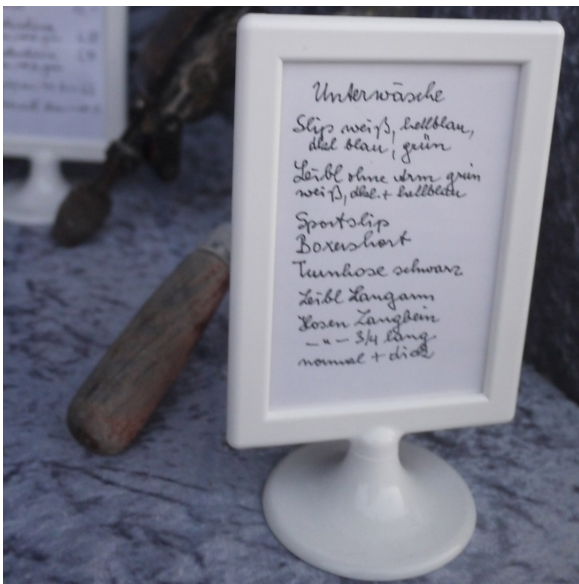 Unterwäsche
Slips weiß, hellblau,
dkl blau, grün
Leibl ohne Arm grün
weiß, dkl. + hellblau
Sportslip
Boxershort
Turnhose schwarz
Leibl Langarm
Hosen Langbein
– " – 3/4 lang
normal + dick